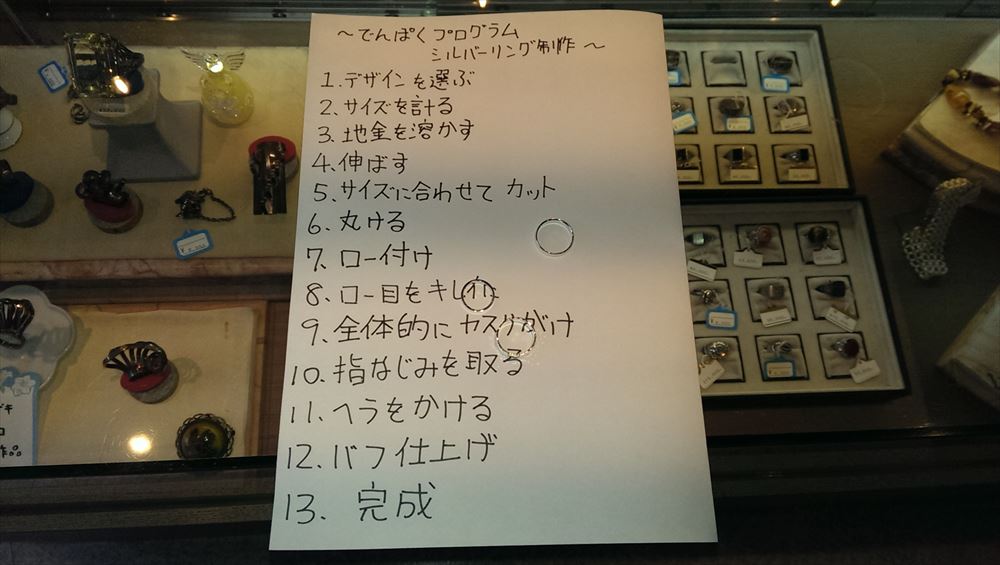 ～でんぱくプログラム
シルバーリング制作～
1.デザインを選ぶ
2.サイズを計る
3.地金を溶かす
4.伸ばす
5.サイズに合わせてカット
6.丸ける
7.ロー付け
8.ロー目をキレイに
9.全体的にヤスリがけ
10.指なじみを取る
11.ヘラをかける
12.バフ仕上げ
13.完成